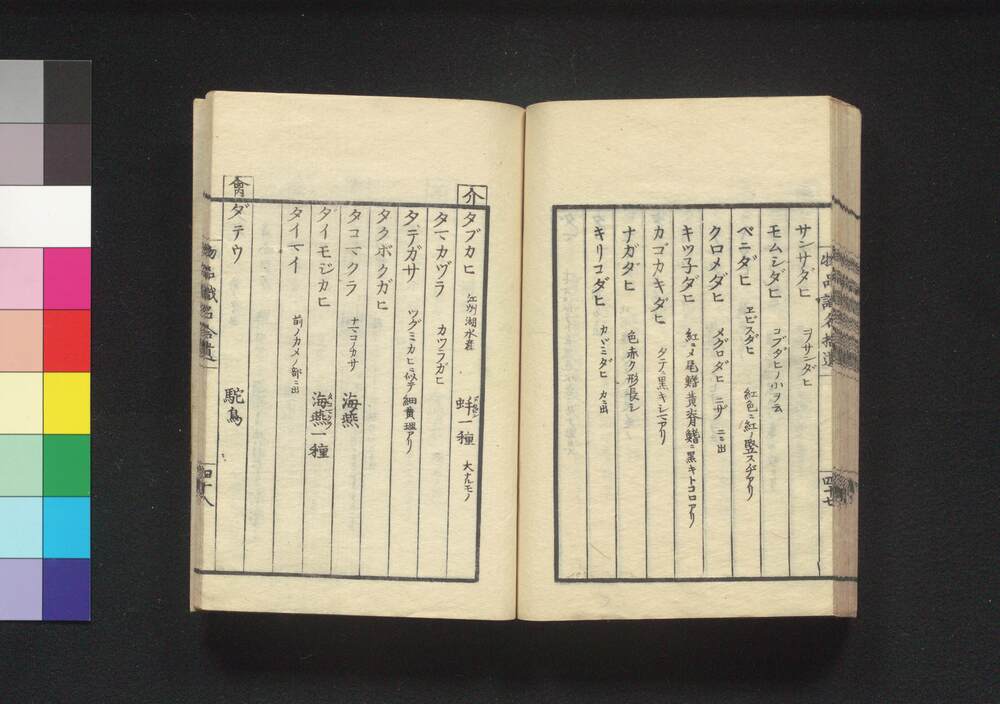 サンサダヒ ヲサンダヒ
モムシダヒ コブダヒノ小ヲ云
ベニダヒ ヱビスダヒ 紅色ニ紅ノ竪スヂアリ
クロメダヒ メグロダヒ ニザ ニニ出
キツ子ダヒ 紅ヨメ尾鰭黄脊鰭ニ黒キトコロアリ
カゴカキダヒ タテニ黒キシマアリ
ナガダヒ 色赤ク形長シ
キリコダヒ カヾミダヒ カニ出
物品識名拾遺
四十七
介 タブカヒ 江州湖水産 蚌一種 大ナルモノ
タマカヅラ カツラガヒ
タテガサ ツグミカヒニ似テ細黄理アリ
タクボクガヒ
タコマクラ ナマコノカサ 海燕
ダイモジカヒ 海燕一種
タイマイ 前ノカメノ部ニ出
禽 ダテウ 駝鳥
物品識名拾遺
四十八